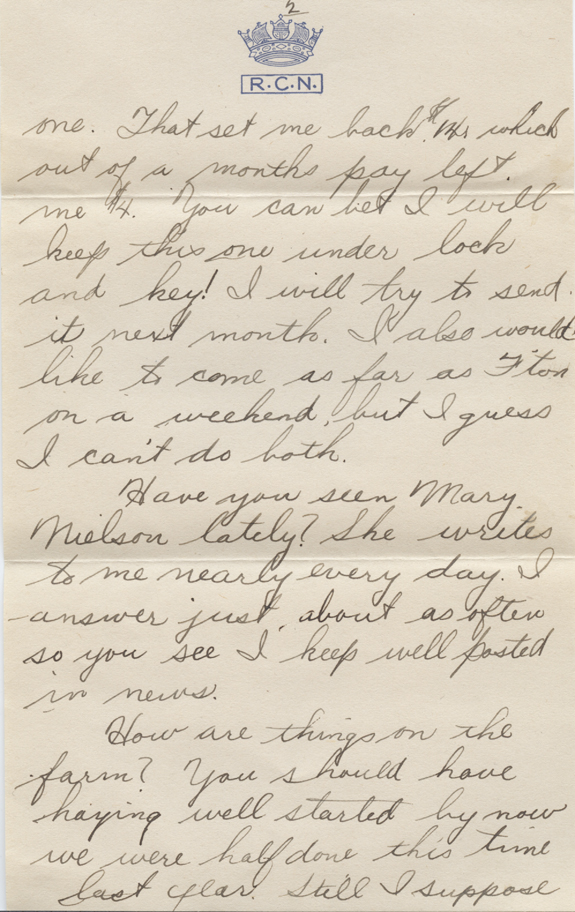 2
R.C.N.
one. That set me back $14. which
out of a months pay left
me $4. You can bet I will
keep this one under lock
and key! I will try to send
it next month. I also would
like to come as far as F'ton
on a weekend, but I guess
I can't do both.
Have you seen Mary
Nielson lately? She writes
to me nearly every day. I
answer just about as often
so you see I keep well posted
in news.
How are things on the
farm? You should have
haying well started by now
we were half done this time
last year. Still I suppose